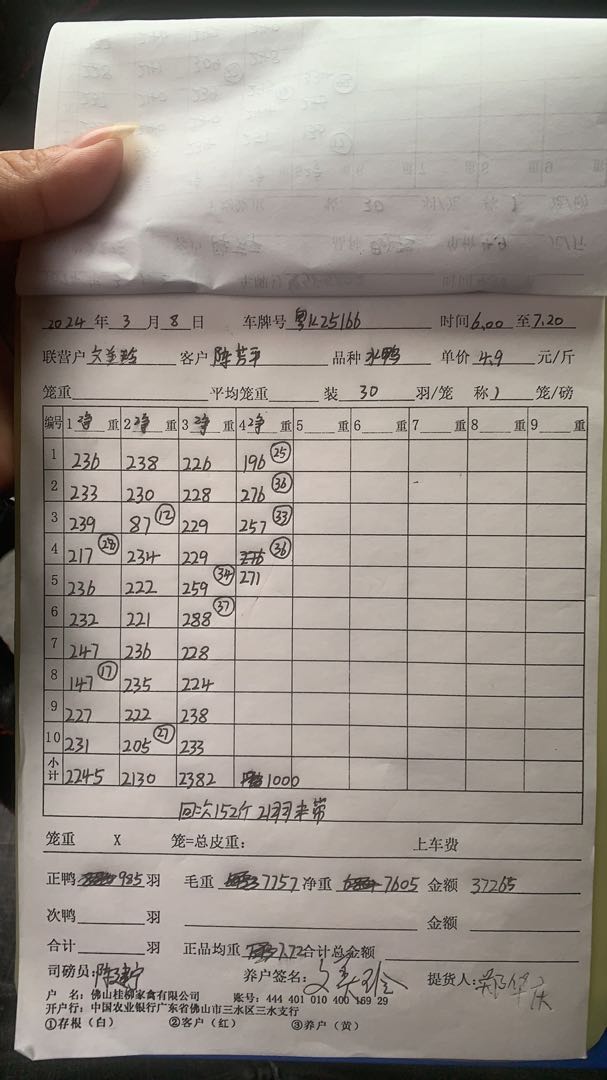 2024 年 3 月 8 日 车牌号 粤K25166 时间 6.00 至 7.20
联营户 客户 陈芳平 品种 水鸭 单价 4.9 元/斤
笼重 平均笼重 装 30 羽/笼 称 1 笼/磅
编号 1 净 重 2 净 重 3 净 重 4 净 重 5 重 6 重 7 重 8 重 9 重
1 236 238 226 196 25
2 233 230 228 276 36
3 239 87 12 229 257 33
4 217 28 234 229 36
5 236 222 259 34 271
6 232 221 288 37
7 247 236 228
8 147 17 235 224
9 227 222 238
10 231 205 27 233
小计 2245 2130 2382 1000
回次152斤 21羽未带
笼重 X 笼=总皮重: 上车费
正鸭 985 羽 毛重 7757 净重 7605 金额 37265
次鸭 羽 金额
合计 羽 正品均重 7.72 合计总金额
司磅员: 养户签名: 提货人:
户 名: 佛山桂柳家禽有限公司 账号: 444 401 010 400 169 29
开户行: 中国农业银行广东省佛山市三水区三水支行
①存根(白) ②客户(红) ③养户(黄)